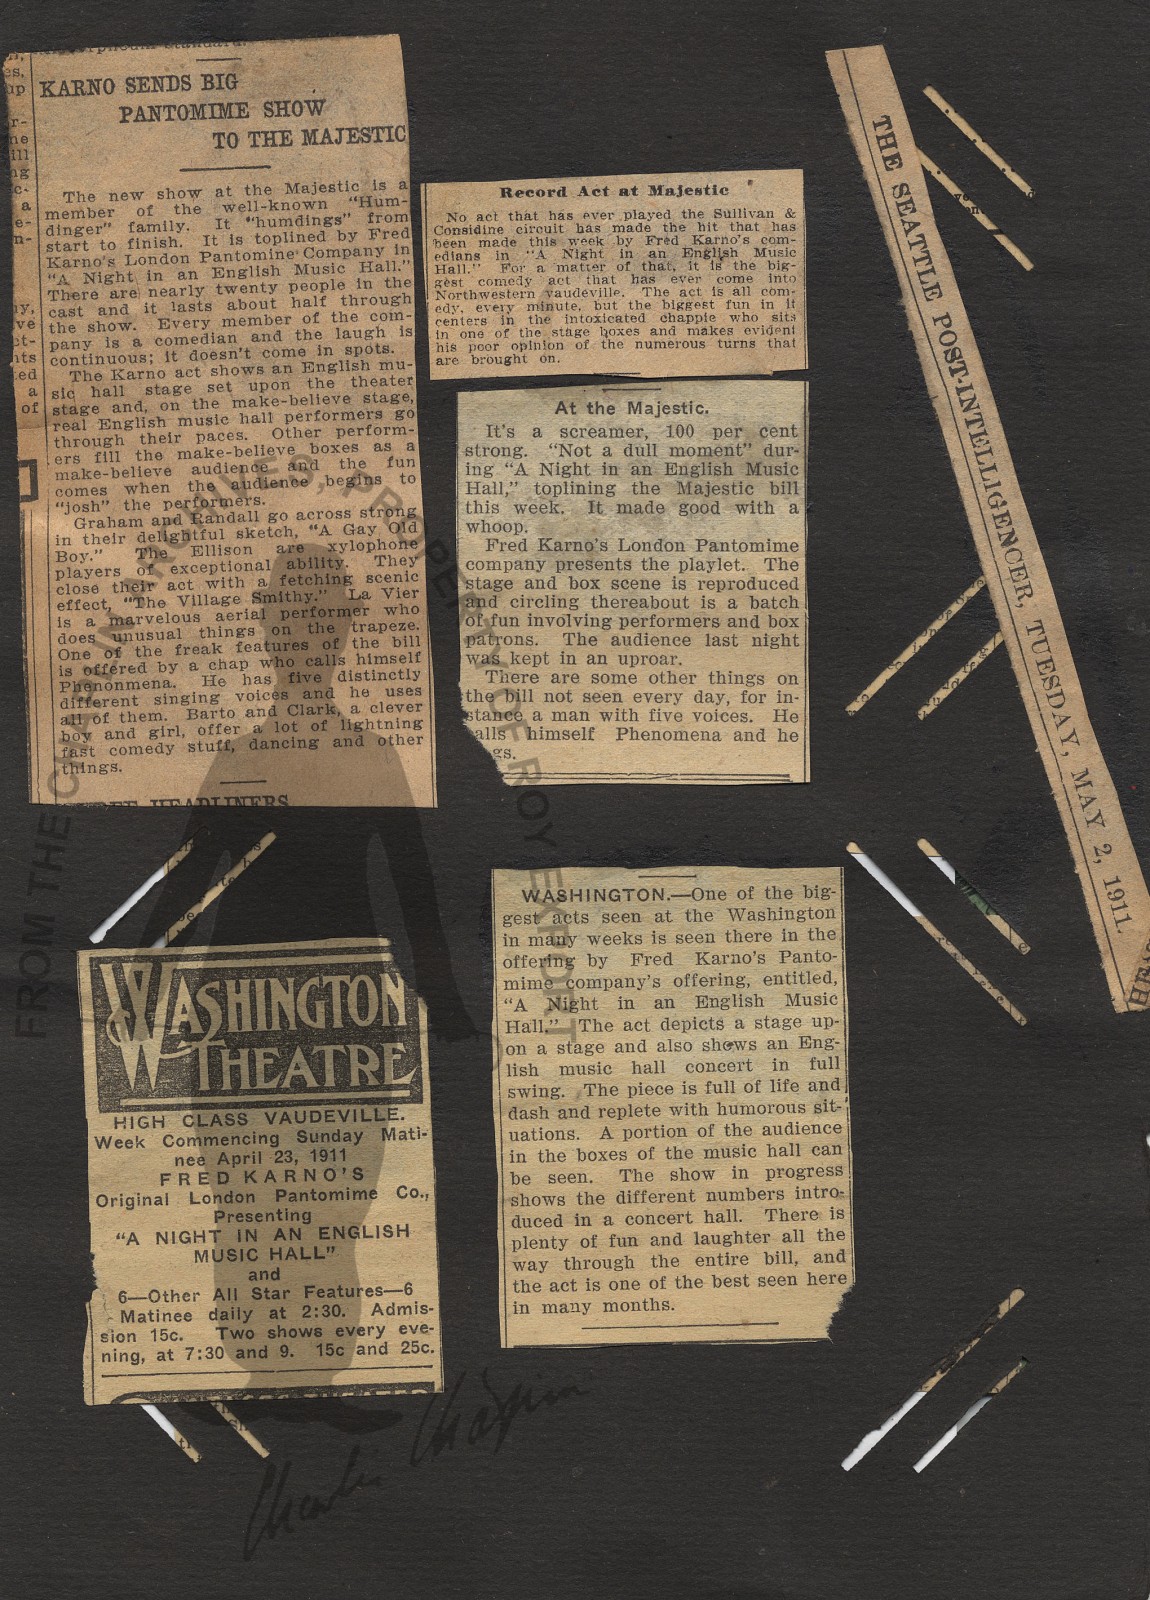 KARNO SENDS BIG
PANTOMIME SHOW
TO THE MAJESTIC
The new show at the Majestic is a
member of the well-known "Hum-
dinger" family. It "humdings" from
start to finish. It is toplined by Fred
Karno's London Pantomine Company in
"A Night in an English Music Hall."
There are nearly twenty people in the
cast and it lasts about half through
the show. Every member of the com-
pany is a comedian and the laugh is
continuous; it doesn't come in spots.
The Karno act shows an English mu-
sic hall stage set upon the theater
stage and, on the make-believe stage,
real English music hall performers go
through their paces. Other perform-
ers fill the make-believe boxes as a
make-believe audience and the fun
comes when the audience begins to
"josh" the performers.
Graham and Randall go across strong
in their delightful sketch, "A Gay Old
Boy." The Ellison are xylophone
players of exceptional ability. They
close their act with a fetching scenic
effect, "The Village Smithy." La Vier
is a marvelous aerial performer who
does unusual things on the trapeze.
One of the freak features of the bill
is offered by a chap who calls himself
Phenonmena. He has five distinctly
different singing voices and he uses
all of them. Barto and Clark, a clever
boy and girl, offer a lot of lightning
fast comedy stuff, dancing and other
things.
HEADLINERS
Record Act at Majestic
No act that has ever played the Sullivan &
Considine circuit has made the hit that has
been made this week by Fred Karno's com-
edians in "A Night in an English Music
Hall." For a matter of that, it is the big-
gest comedy act that has ever come into
Northwestern vaudeville. The act is all com-
edy, every minute, but the biggest fun in it
centers in the intoxicated chappie who sits
in one of the stage boxes and makes evident
his poor opinion of the numerous turns that
are brought on.
At the Majestic.
It's a screamer, 100 per cent
strong. "Not a dull moment" dur-
ing "A Night in an English Music
Hall," toplining the Majestic bill
this week. It made good with a
whoop.
Fred Karno's London Pantomime
company presents the playlet. The
stage and box scene is reproduced
and circling thereabout is a batch
of fun involving performers and box
patrons. The audience last night
was kept in an uproar.
There are some other things on
the bill not seen every day, for in-
stance a man with five voices. He
calls himself Phenomena and he
THE SEATTLE POST-INTELLIGENCER, TUESDAY, MAY 2, 1911.
WASHINGTON THEATRE
HIGH CLASS VAUDEVILLE.
Week Commencing Sunday Mati-
nee April 23, 1911
FRED KARNO'S
Original London Pantomime Co.,
Presenting
"A NIGHT IN AN ENGLISH
MUSIC HALL"
and
6—Other All Star Features—6
Matinee daily at 2:30. Admis-
sion 15c. Two shows every eve-
ning, at 7:30 and 9. 15c and 25c.
WASHINGTON.—One of the big-
gest acts seen at the Washington
in many weeks is seen there in the
offering by Fred Karno's Panto-
mime company's offering, entitled,
"A Night in an English Music
Hall." The act depicts a stage up-
on a stage and also shows an Eng-
lish music hall concert in full
swing. The piece is full of life and
dash and replete with humorous sit-
uations. A portion of the audience
in the boxes of the music hall can
be seen. The show in progress
shows the different numbers intro-
duced in a concert hall. There is
plenty of fun and laughter all the
way through the entire bill, and
the act is one of the best seen here
in many months.
FROM THE CHAPLIN ARCHIVES, PROPERTY OF ROY EXPORT
Charlie Chaplin